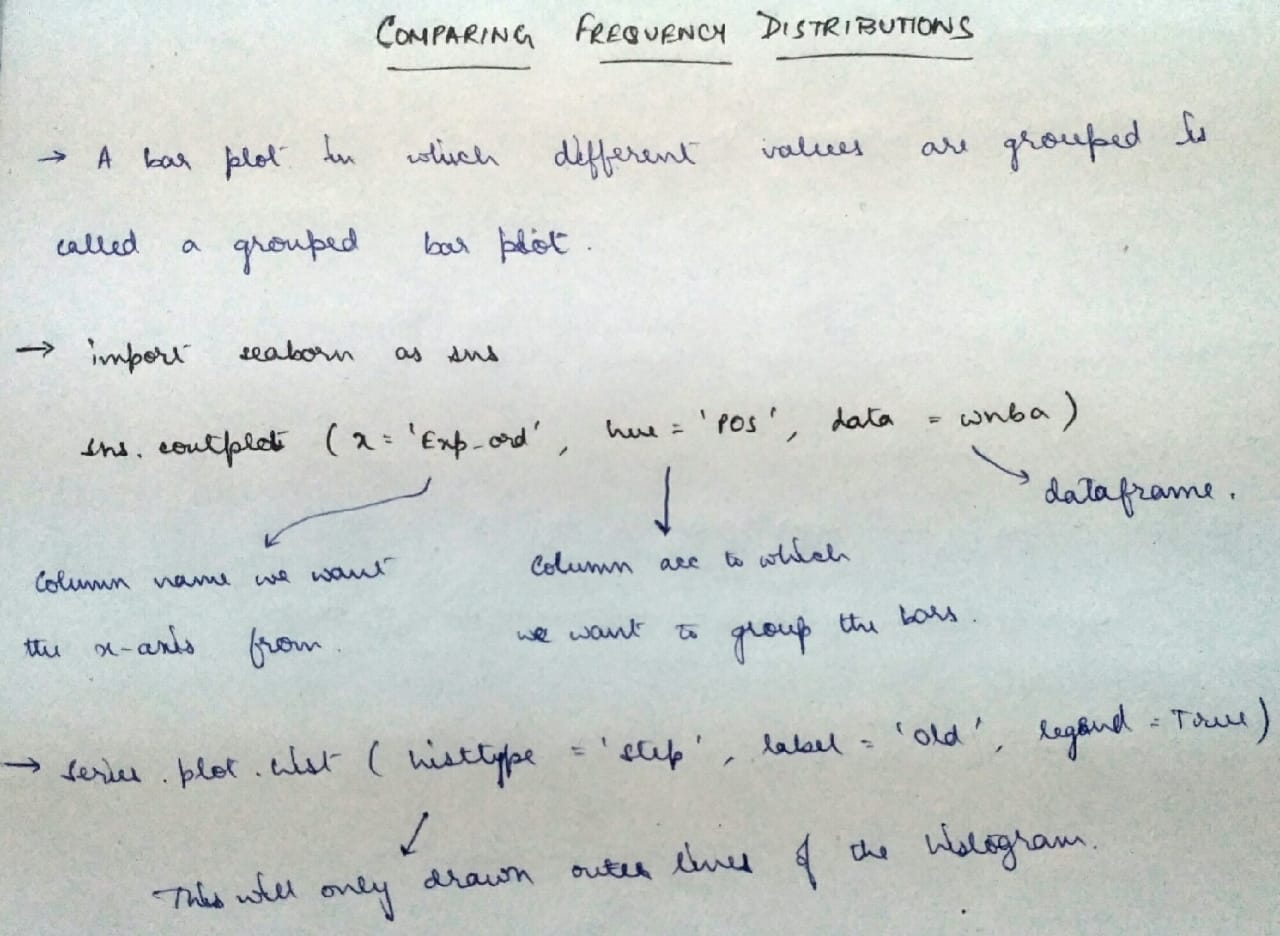 COMPARING FREQUENCY DISTRIBUTIONS
→ A bar plot in which different values are grouped is
called a grouped bar plot.
→ import seaborn as sns
sns. coutplot (x = 'Exp_ord', hue = 'POS', data = wnba)
dataframe.
Column name we want
the x-axis from.
Column acc to which
we want to group the bars.
→ series.plot.hist ( histtype = 'step', label = 'old', legend = True)
This will only drawn outer lines of the histogram.